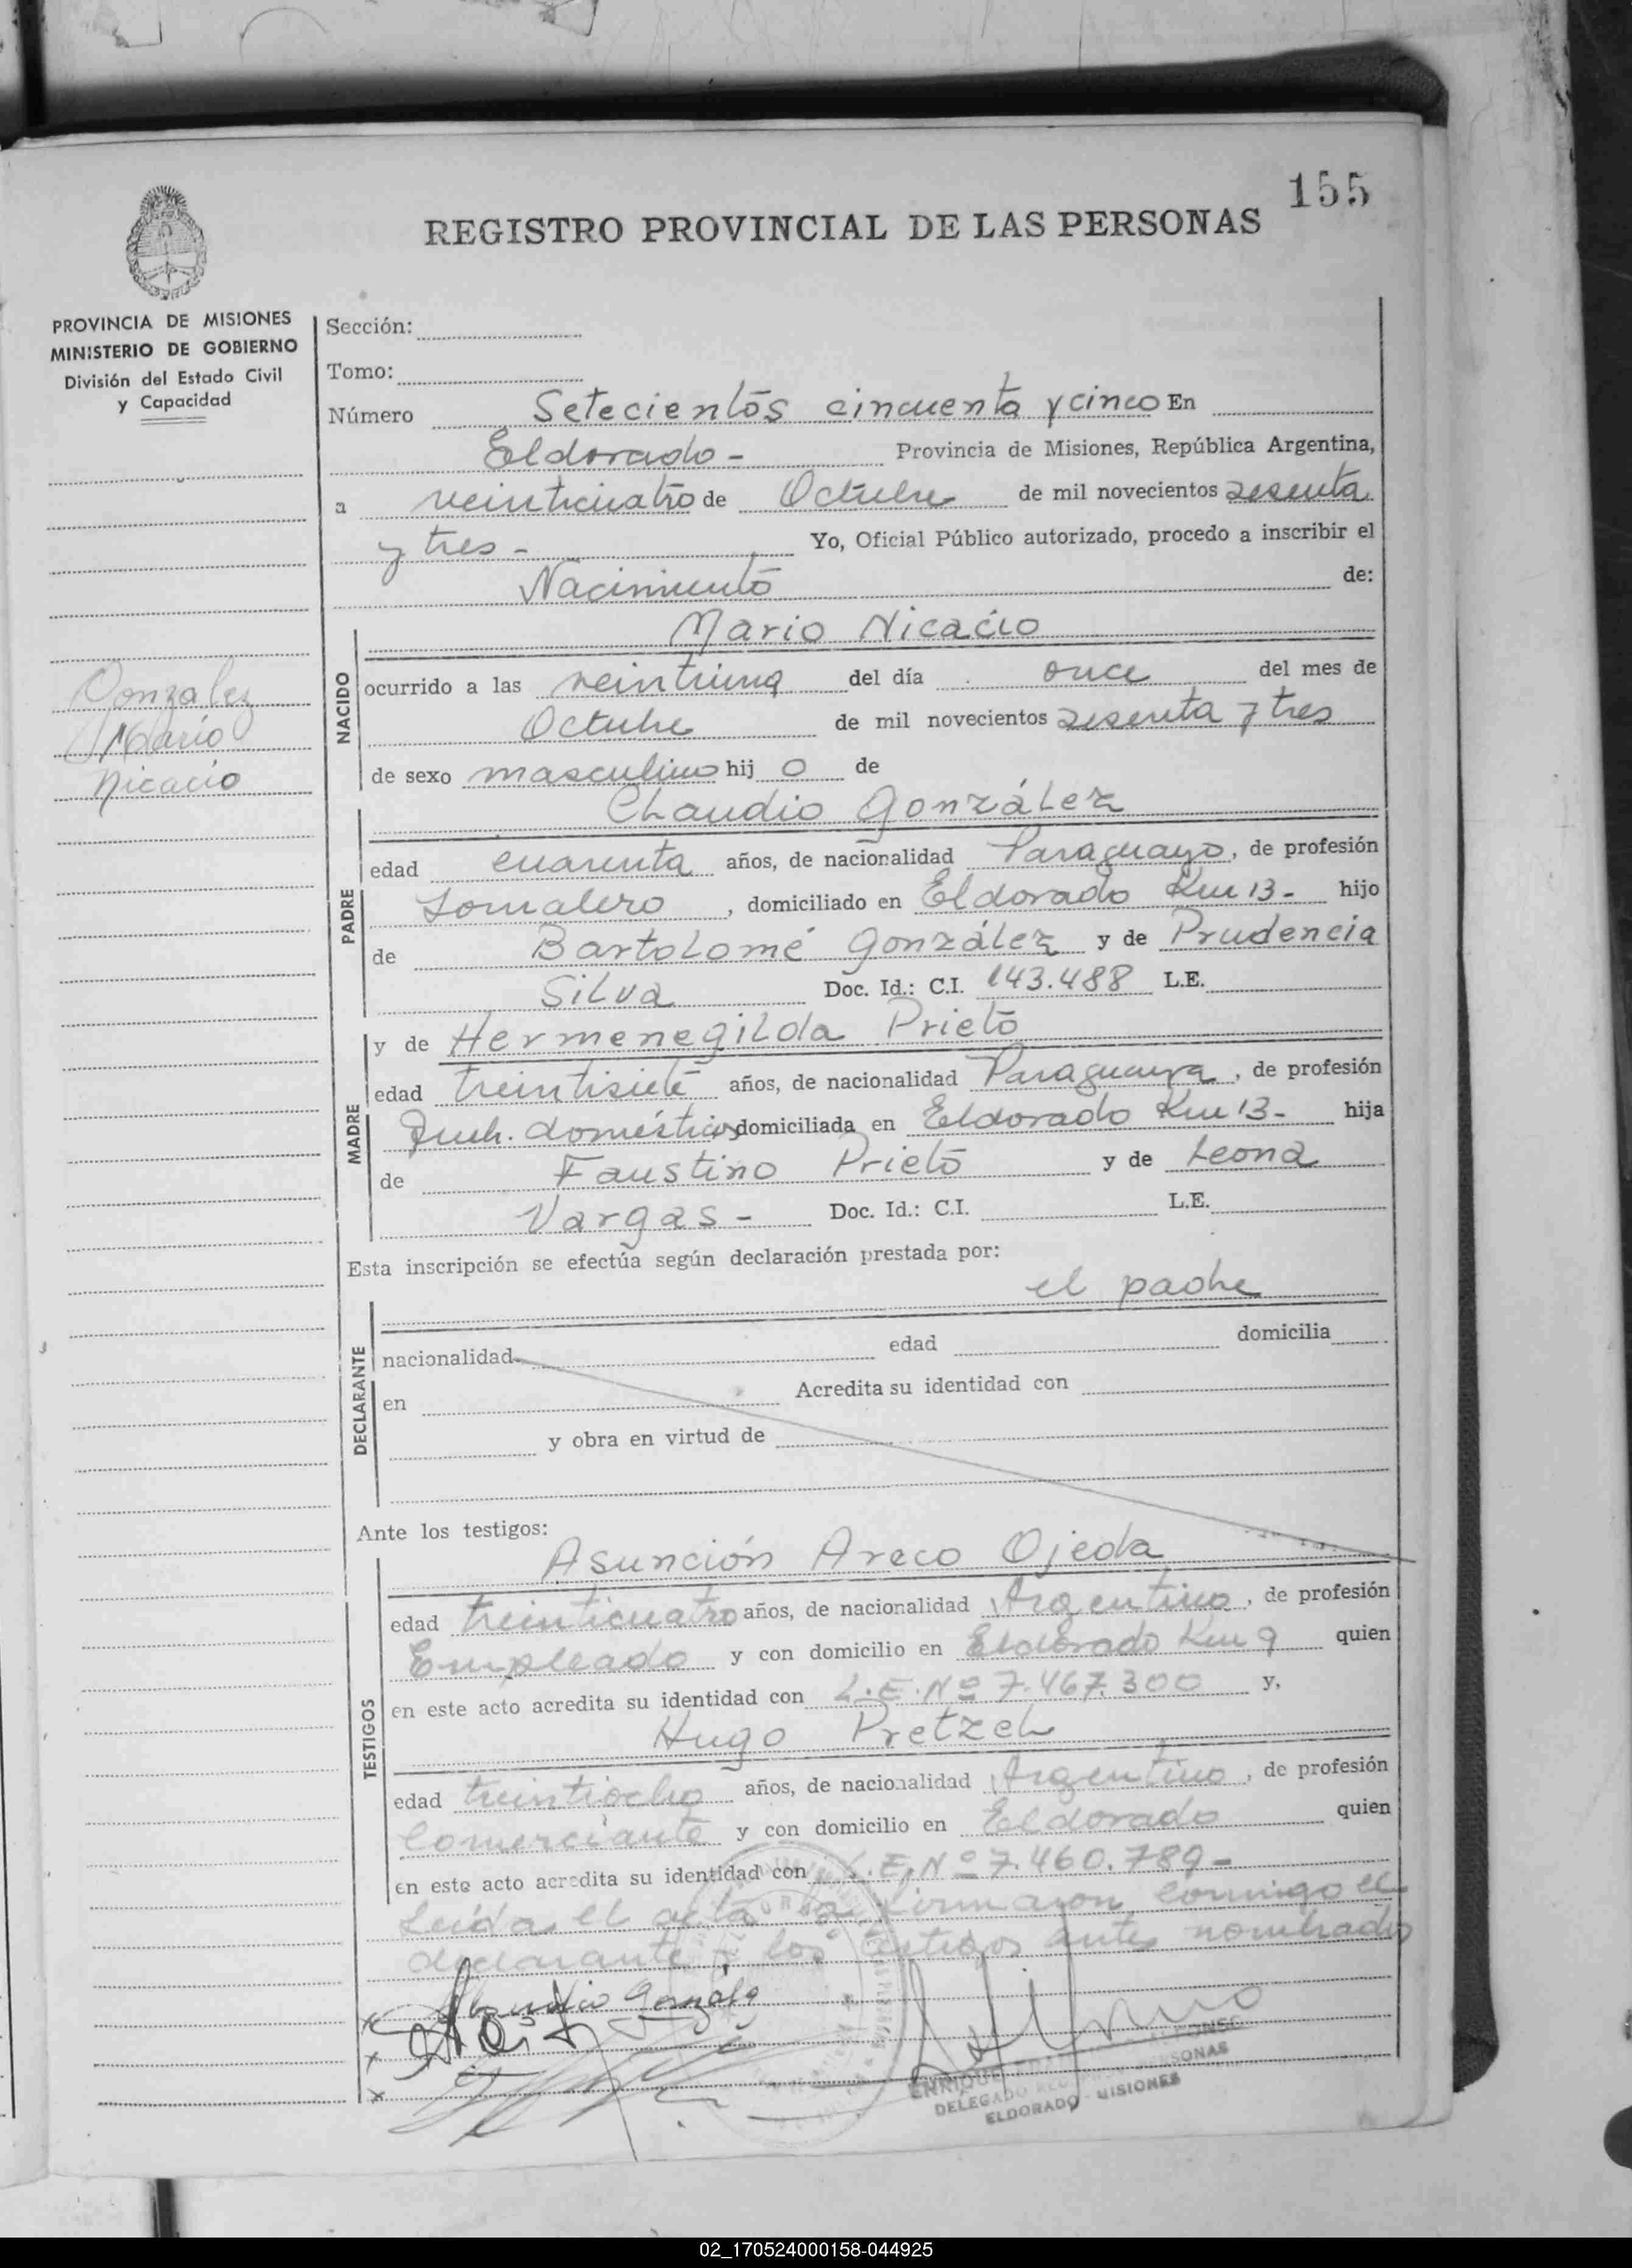 155
REGISTRO PROVINCIAL DE LAS PERSONAS
PROVINCIA DE MISIONES
MINISTERIO DE GOBIERNO
División del Estado Civil
y Capacidad
Gonzalez
Mario
Nicacio
Sección:
Tomo:
Número Setecientos cincuenta y cinco En
Eldorado - Provincia de Misiones, República Argentina,
a veinticuatro de Octubre de mil novecientos sesenta
y tres - Yo, Oficial Público autorizado, procedo a inscribir el
Nacimiento de:
Mario Nicacio
NACIDO
ocurrido a las veintiuna del día once del mes de
Octubre de mil novecientos sesenta y tres
de sexo masculino hij o de
Claudio González
PADRE
edad cuarenta años, de nacionalidad Paraguayo, de profesión
Jornalero, domiciliado en Eldorado Km 13- hijo
de Bartolomé González y de Prudencia
Silva Doc. Id.: C.I. 143.488 L.E.
y de Hermenegilda Prieto
MADRE
edad treintisiete años, de nacionalidad Paraguaya, de profesión
Queh. domésticos domiciliada en Eldorado Km 13- hija
de Faustino Prieto y de Leona
Vargas - Doc. Id.: C.I. L.E.
Esta inscripción se efectúa según declaración prestada por:
el padre
DECLARANTE
nacionalidad edad domicilia
en Acredita su identidad con
y obra en virtud de
Ante los testigos:
Asunción Areco Ojeda
TESTIGOS
edad treinticuatro años, de nacionalidad Argentino, de profesión
Empleado y con domicilio en Eldorado Km 9 quien
en este acto acredita su identidad con L.E. Nº 7.467.300 y,
Hugo Pretzel
edad treintiocho años, de nacionalidad Argentino, de profesión
Comerciante y con domicilio en Eldorado quien
en este acto acredita su identidad con L.E. Nº 7.460.789-
Leída el acta la firmaron conmigo el
declarante y los testigos antes nombrados
Claudio González
ENRIQUE ALFONSO
DELEGADO REG. PERSONAS
ELDORADO - MISIONES
02_170524000158-044925